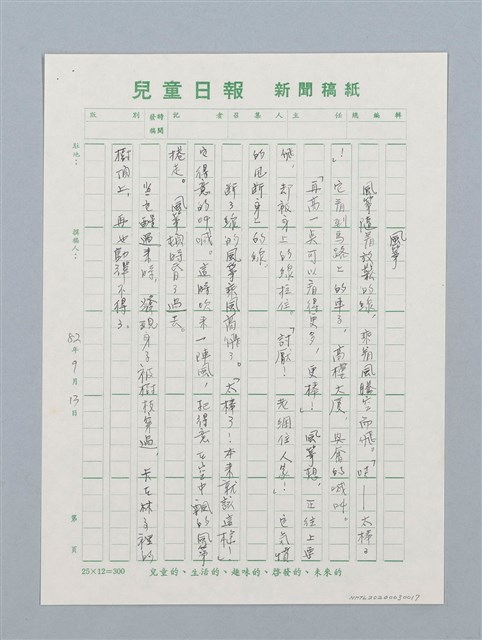 兒童日報 新聞稿紙
版 別 發稿時間 記者 召集人 主任 總編輯
駐地：
撰稿人：
82年9月13日
第 頁
風箏
風箏隨著放鬆的線，乘著風騰空而飛。「哇——太棒了
！」它看到馬路上的車子，高樓大廈，興奮的喊叫。
「再高一點可以看得更多，更棒！」風箏想，正往上要
飛，卻被身上的線拉住。「討厭！老綑住人家！」它氣憤
的甩斷身上的線。
斷了線的風箏乘風高飛了。「太棒了！本來就該這樣！」
它得意的叫喊。這時吹來一陣風，把得意在空中飄的風箏
捲走。風箏頓時昏了過去。
當它醒過來時，發現身子被樹枝穿過，卡在林子裡的
樹頂上，再也動彈不得了。
25×12=300 兒童的、生活的、趣味的、啓發的、未來的
NMTL20200030017